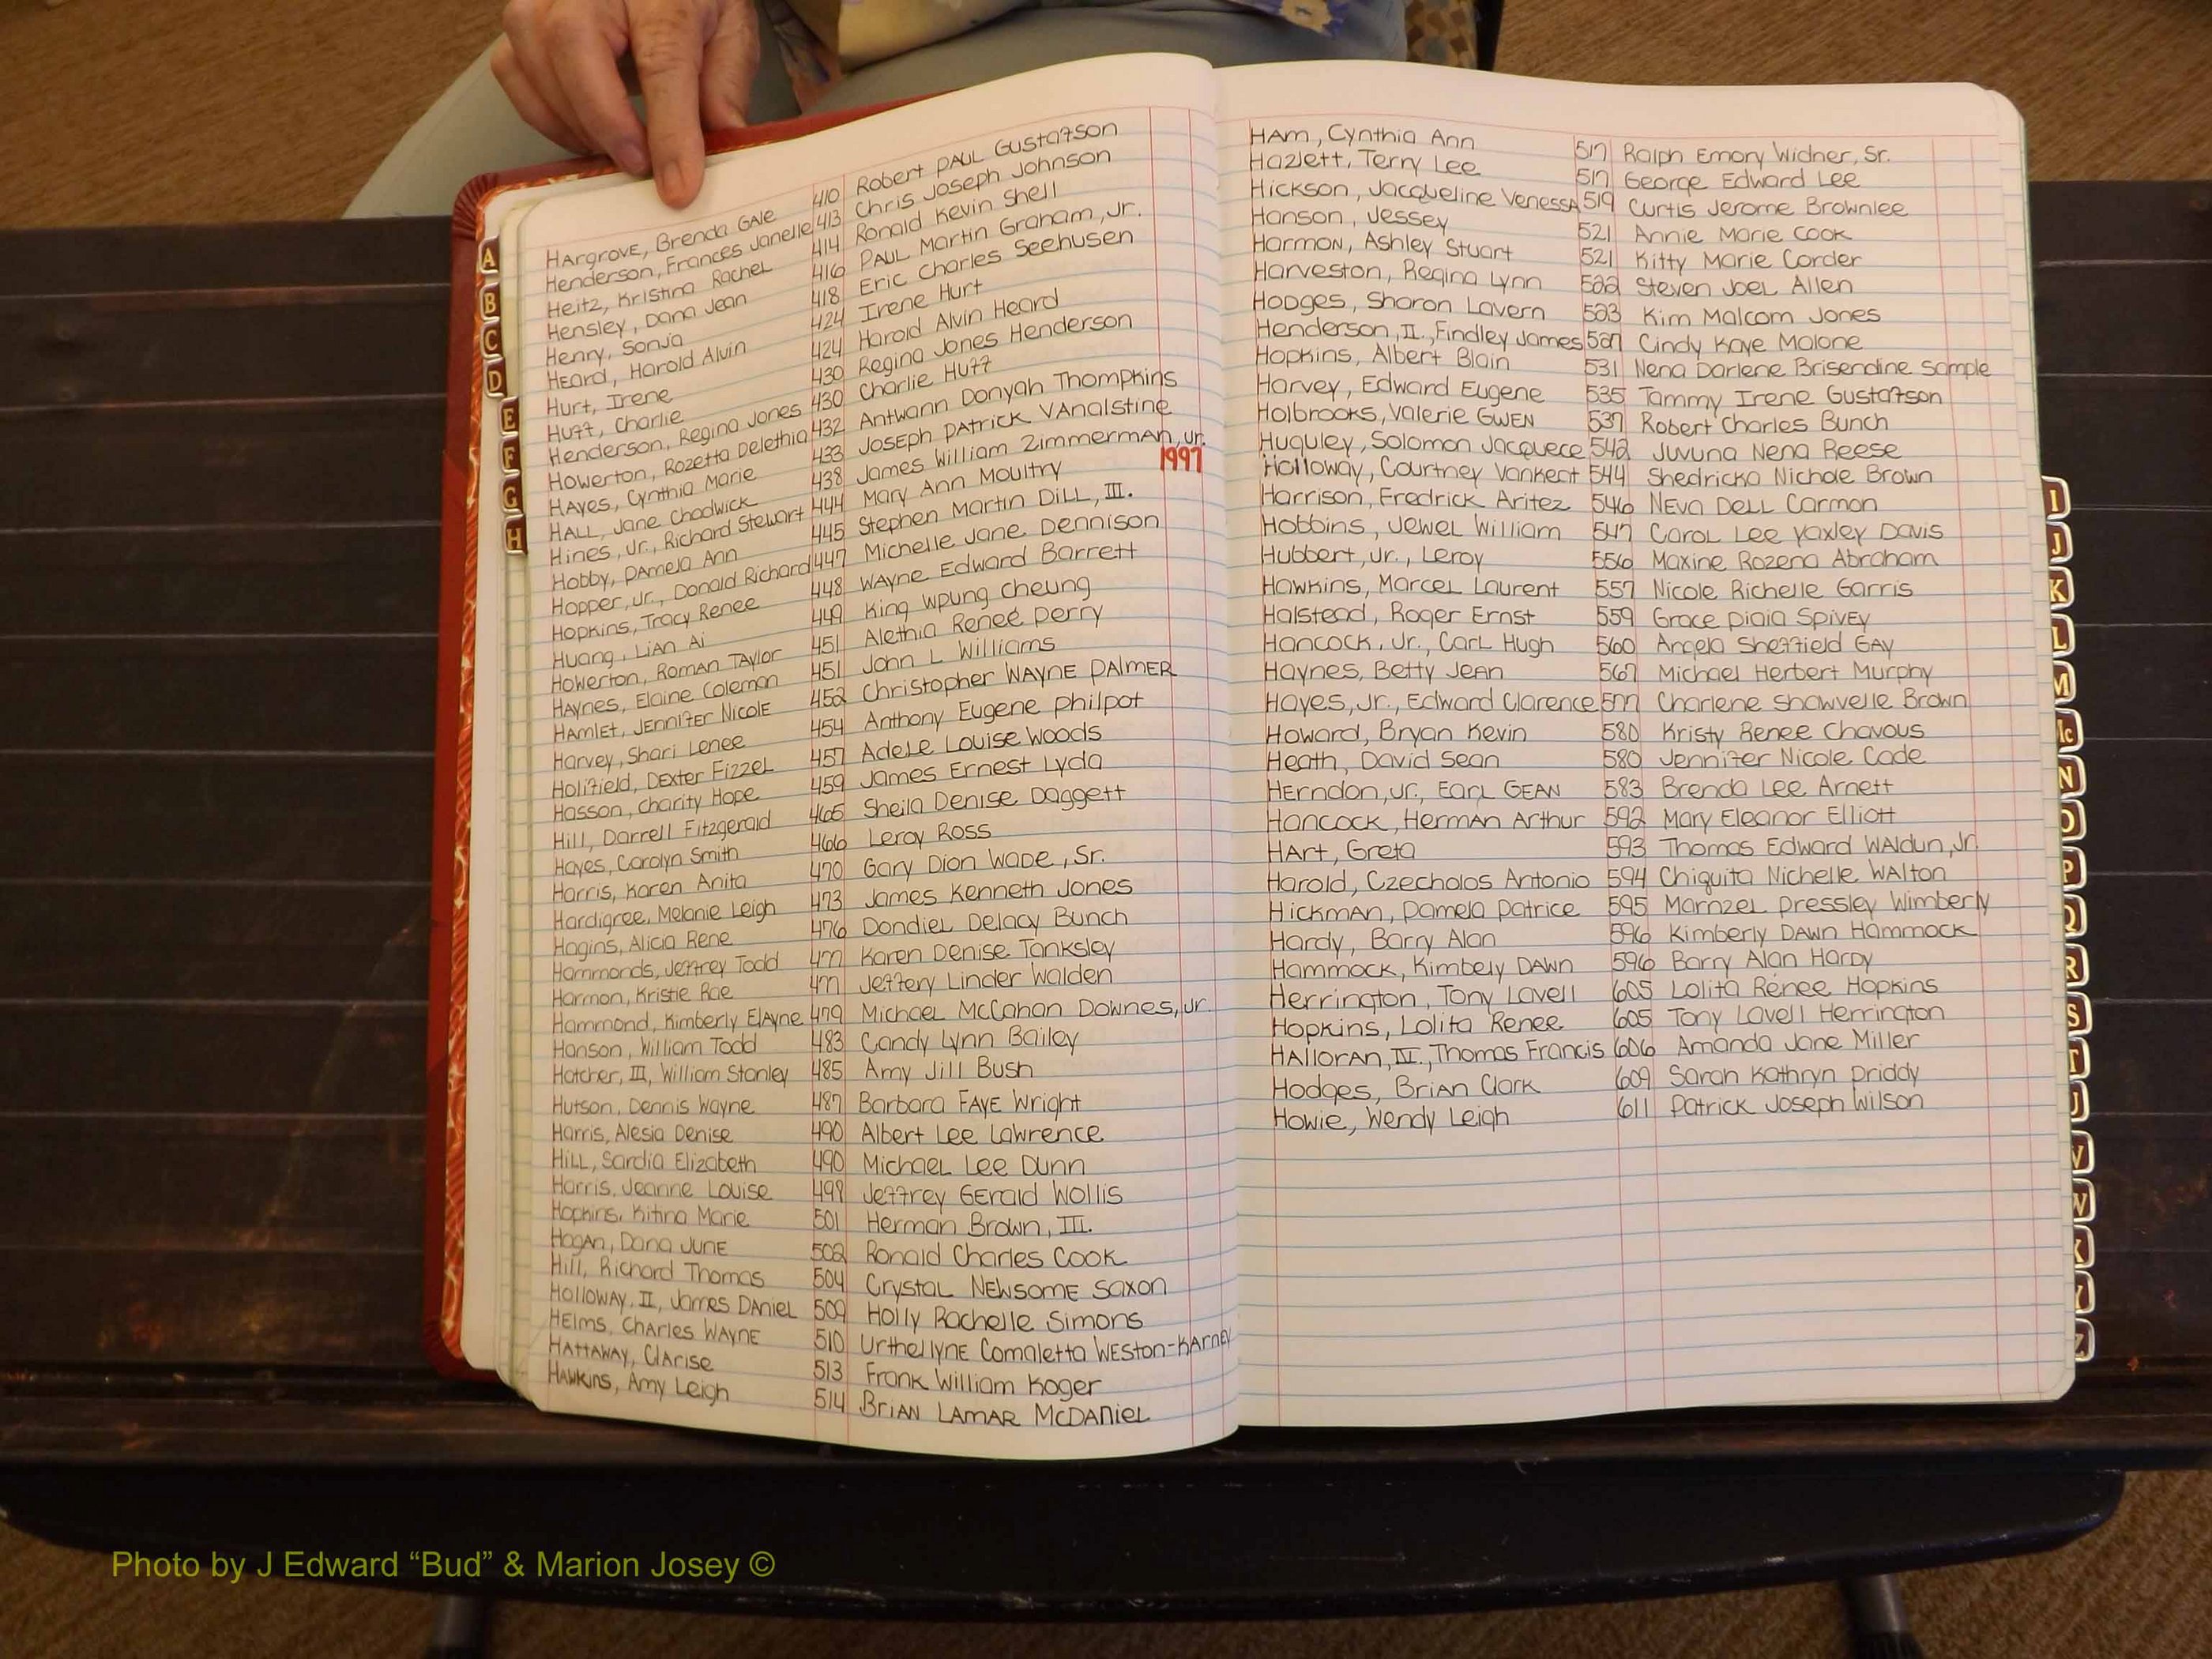 Hargrove, Brenda Gale 410 Robert Paul Gustafson
Henderson, Frances Janelle 413 Chris Joseph Johnson
Heitz, Kristina Rachel 414 Ronald Kevin Shell
Hensley, Dana Jean 416 Paul Martin Graham, Jr.
Henry, Sonja 418 Eric Charles Seehusen
Heard, Harold Alvin 424 Irene Hurt
Hurt, Irene 424 Harold Alvin Heard
Huff, Charlie 430 Regina Jones Henderson
Henderson, Regina Jones 430 Charlie Huff
Howerton, Rozetta Delethia 432 Antwann Donyah Thompkins
Hayes, Cynthia Marie 433 Joseph Patrick Vanalstine
Hall, Jane Chadwick 438 James William Zimmerman, Jr.
Hines, Jr., Richard Stewart 444 Mary Ann Moultry 1997
Hobby, Pamela Ann 445 Stephen Martin Dill, III.
Hopper, Jr., Donald Richard 447 Michelle Jane Dennison
Hopkins, Tracy Renee 448 Wayne Edward Barrett
Huang, Lian Ai 449 King Wpung Cheung
Howerton, Roman Taylor 451 Alethia Reneé Perry
Haynes, Elaine Coleman 451 John L Williams
Hamlet, Jennifer Nicole 452 Christopher Wayne Palmer
Harvey, Shari Lenee 454 Anthony Eugene Philpot
Holifield, Dexter Fizzel 457 Adele Louise Woods
Hasson, Charity Hope 459 James Ernest Lyda
Hill, Darrell Fitzgerald 465 Sheila Denise Daggett
Hayes, Carolyn Smith 466 Leroy Ross
Harris, Karen Anita 470 Gary Dion Wade, Sr.
Hardigree, Melanie Leigh 473 James Kenneth Jones
Hagins, Alicia Rene 476 Dondiel Delacy Bunch
Hammonds, Jeffrey Todd 477 Karen Denise Tanksley
Harmon, Kristie Rae 477 Jeffery Linder Walden
Hammond, Kimberly Elayne 479 Michael McCahan Downes, Jr.
Hanson, William Todd 483 Candy Lynn Bailey
Hatcher, III, William Stanley 485 Amy Jill Bush
Hutson, Dennis Wayne 487 Barbara Faye Wright
Harris, Alesia Denise 490 Albert Lee Lawrence
Hill, Sardia Elizabeth 490 Michael Lee Dunn
Harris, Jeanne Louise 498 Jeffrey Gerald Wollis
Hopkins, Kitina Marie 501 Herman Brown, III.
Hogan, Dana June 502 Ronald Charles Cook
Hill, Richard Thomas 504 Crystal Newsome Saxon
Holloway, II, James Daniel 509 Holly Rachelle Simons
Helms, Charles Wayne 510 Urthellyne Comaletta Weston-Karney
Hattaway, Clarise 513 Frank William Koger
Hawkins, Amy Leigh 514 Brian Lamar McDaniel
Ham, Cynthia Ann 517 Ralph Emory Widner, Sr.
Hazlett, Terry Lee 517 George Edward Lee
Hickson, Jacqueline Venessa 519 Curtis Jerome Brownlee
Hanson, Jessey 521 Annie Marie Cook
Harmon, Ashley Stuart 521 Kitty Marie Corder
Harveston, Regina Lynn 522 Steven Joel Allen
Hodges, Sharon Lavern 523 Kim Malcom Jones
Henderson, II., Findley James 527 Cindy Kaye Malone
Hopkins, Albert Blain 531 Nena Darlene Brisendine Sample
Harvey, Edward Eugene 535 Tammy Irene Gustafson
Holbrooks, Valerie Gwen 537 Robert Charles Bunch
Huguley, Solomon Jacquece 542 Juvuna Nena Reese
Holloway, Courtney Vankent 544 Shedricka Nichole Brown
Harrison, Fredrick Aritez 546 Neva Dell Carmon
Hobbins, Jewel William 547 Carol Lee Yaxley Davis
Hubbert, Jr., Leroy 556 Maxine Rozena Abraham
Hawkins, Marcel Laurent 557 Nicole Richelle Garris
Halstead, Roger Ernst 559 Grace Piaia Spivey
Hancock, Jr., Carl Hugh 560 Angela Sheffield Gay
Haynes, Betty Jean 567 Michael Herbert Murphy
Hayes, Jr., Edward Clarence 577 Charlene Shawvelle Brown
Howard, Bryan Kevin 580 Kristy Renee Chavous
Heath, David Sean 580 Jennifer Nicole Cade
Herndon, Jr., Earl Gean 583 Brenda Lee Arnett
Hancock, Herman Arthur 592 Mary Eleanor Elliott
Hart, Greta 593 Thomas Edward Waldun, Jr.
Harold, Czecholos Antonio 594 Chiquita Nichelle Walton
Hickman, Pamela Patrice 595 Marnzel Pressley Wimberly
Hardy, Barry Alan 596 Kimberly Dawn Hammock
Hammock, Kimbely Dawn 596 Barry Alan Hardy
Herrington, Tony Lavell 605 Lolita Renee Hopkins
Hopkins, Lolita Renee 605 Tony Lavell Herrington
Halloran, IV., Thomas Francis 606 Amanda Jane Miller
Hodges, Brian Clark 609 Sarah Kathryn Priddy
Howie, Wendy Leigh 611 Patrick Joseph Wilson
A
B
C
D
E
F
G
H
I
J
K
L
M
Mc
N
O
P
Q
R
S
T
U
V
W
X
Y
Z
Photo by J Edward “Bud” & Marion Josey ©